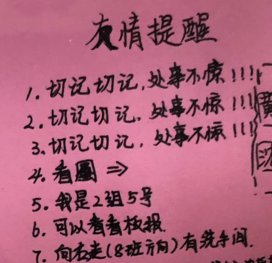 友情提醒
1. 切记切记,处事不惊!!!
2. 切记切记,处事不惊!!!
3. 切记切记,处事不惊!!!
4. 看圈 ⇒
5. 我是2组5号
6. 可以看看板报.
7. 向右走(8班方向)有洗手间.